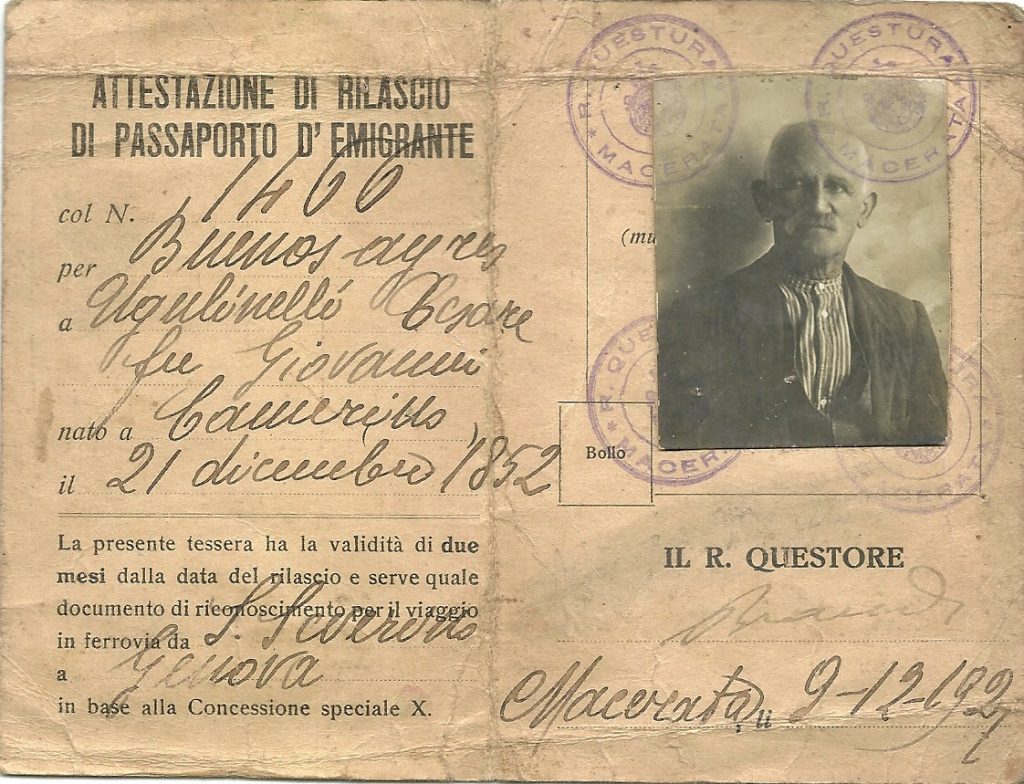 ATTESTAZIONE DI RILASCIO
DI PASSAPORTO D' EMIGRANTE
col N. 1466
per Buenos ayres
a Ugulinelli Cesare
fu Giovanni
nato a Camerino
il 21 dicembre 1852
La presente tessera ha la validità di due
mesi dalla data del rilascio e serve quale
documento di riconoscimento per il viaggio
in ferrovia da S. Severino
a Genova
in base alla Concessione speciale X.
R. QUESTURA
MACERATA
R. QUESTURA
MACERATA
(mu
R. QUESTURA
MACERATA
MACERATA
Bollo
IL R. QUESTORE
Macerata, li 9-12-192